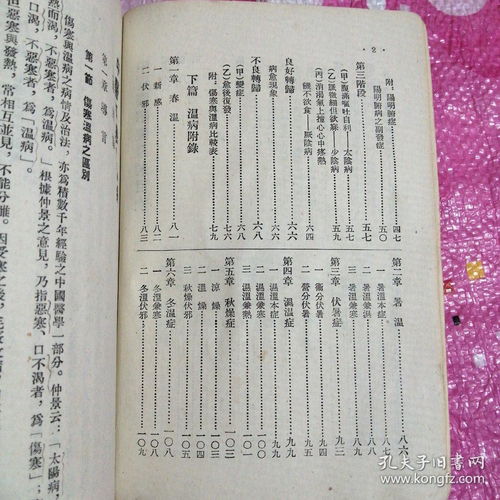 2
附:陽明腑症……四七
陽明腑病之副發症……五〇
第三階段……五七
(甲)腹滿嘔吐自利——太陰病……五七
(乙)脈微細但欲寐——少陰病……五九
(丙)消渴氣上撞心心中疼熱
饑不欲食——厥陰病……六四
良好轉歸……六六
病愈現象……六六
不良轉歸……六八
(甲)變症……六八
(乙)愈後復發……七六
附:傷寒與溫病比較表……七九
下篇 溫病附錄
第一章 春溫……八一
一 新感……八一
二 伏邪……八三
第二章 暑溫……八六
一 暑溫本症
二 暑溫兼濕
三 暑溫兼寒
第三章 伏暑症……九三
一 衞分伏暑
二 營分伏暑……九五
第四章 濕溫症……九九
一 濕溫本症……九九
二 濕溫兼寒
三 濕溫兼熱
第五章 秋燥症……一〇三
一 涼燥
二 溫燥……一〇四
三 秋燥伏邪……一〇五
第六章 冬溫症……一〇八
一 冬溫兼寒
二 冬溫伏邪……一〇九
第一章 導言
第一節 傷寒溫病之區別
傷寒與溫病之病情及治法,亦爲積數千年經驗之中國醫學一部分。仲景云:「太陽病,
熱而渴,不惡寒者,爲溫病。」根據仲景之意見,乃指惡寒、口不渴者,爲「傷寒」;
渴,不惡寒者,爲「溫病」。
但惡寒與發熱,常相互並見,不能分離。因受寒之後,
孔夫子旧书网
www.kongfz.com